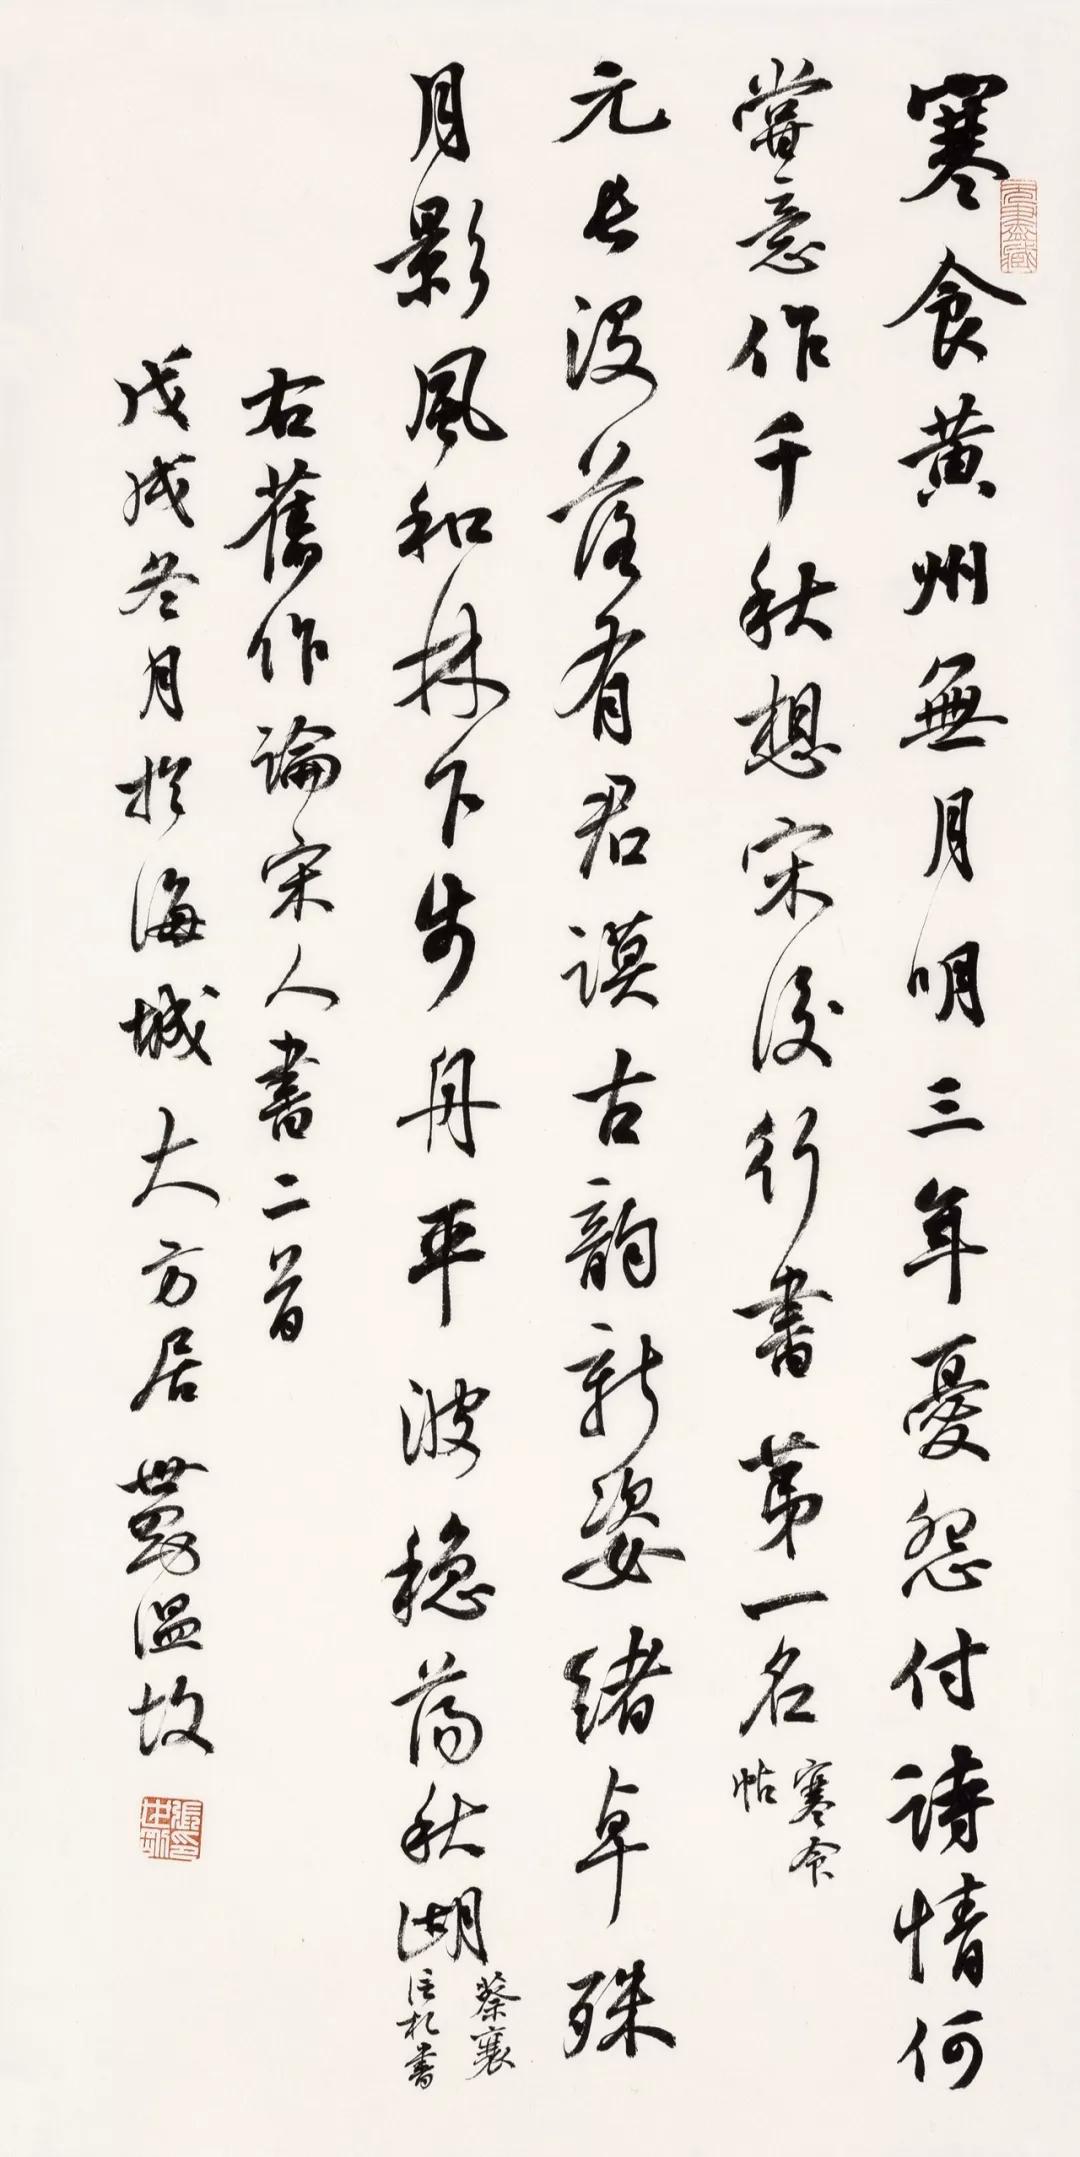 寒食黄州無月明三年憂怨付詩情何
嘗意作千秋想宋後行書第一名
寒食
帖
元長沒落有君謨古韻新姿緒卓殊
月影風和林下步舟平波穩蕩秋湖
蔡襄
信札書
右舊作論宋人書二首
戊戌冬月於海城大方居 溫故